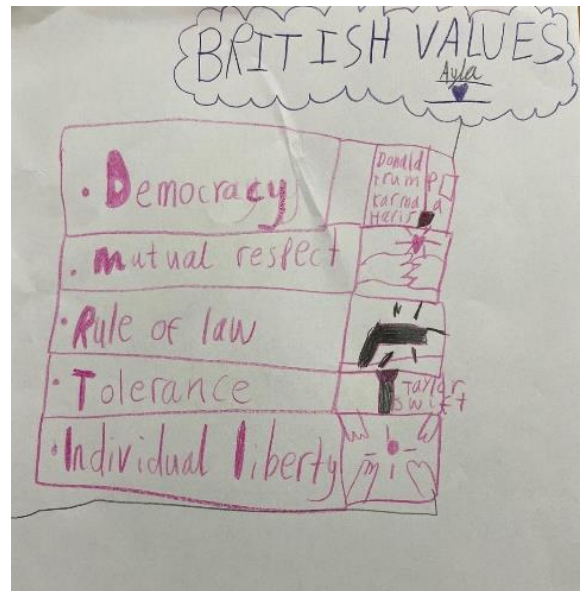 BRITISH VALUES
Ayla
• Democracy
Donald
trump
karma la
Haris
• Mutual respect
• Rule of law
• Tolerance
Taylor
swift
• Individual liberty